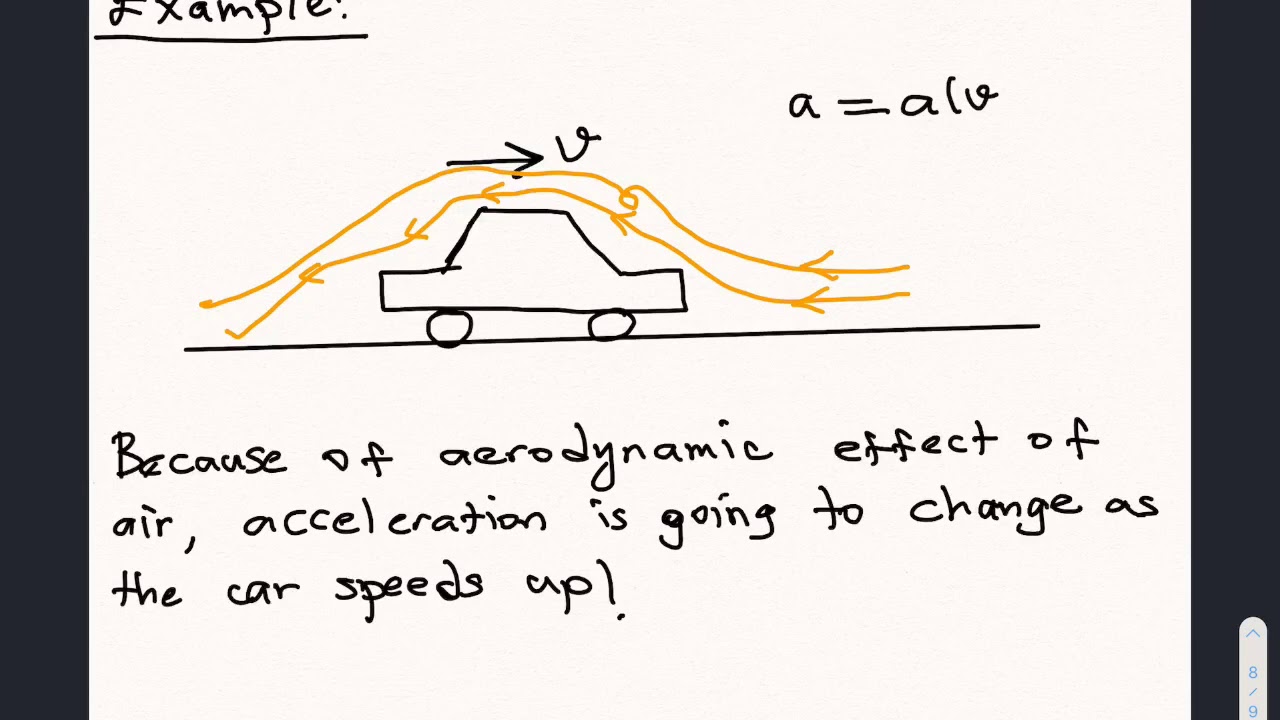 Example:
a = a(v
v
Because of aerodynamic effect of
air, acceleration is going to change as
the car speeds up!
8
/
9